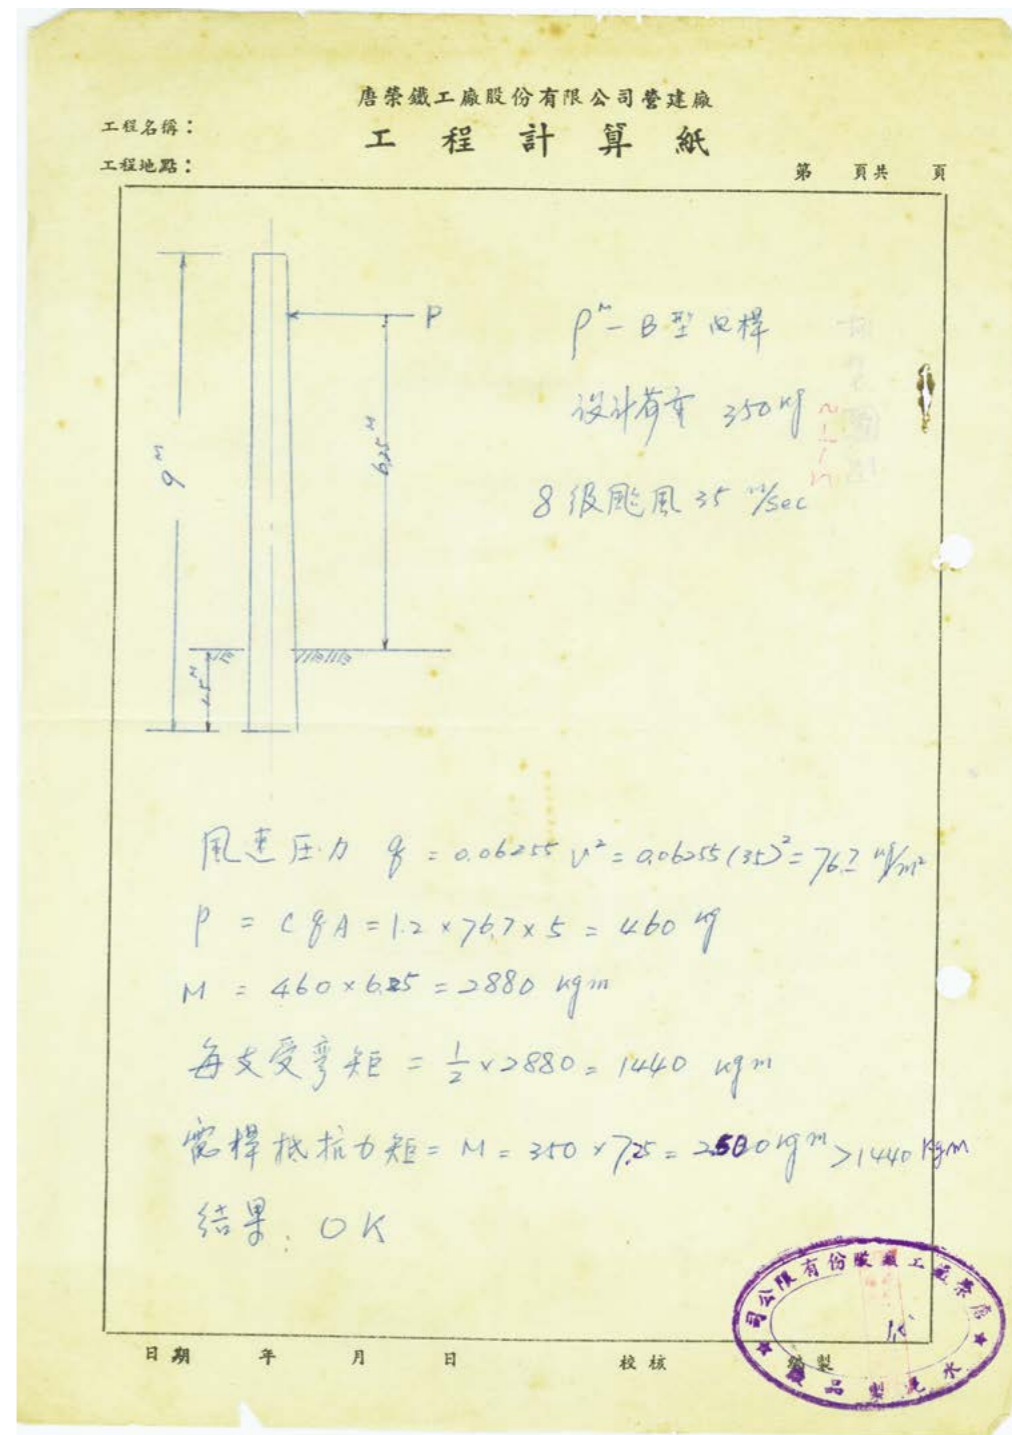 唐榮鐵工廠股份有限公司營建廠
工程名稱：
工程計算紙
工程地點：
第 頁共 頁
P
9M
6.25M
1.5M
9M-B型电桿
設計荷重 350 kg
8級颱風 35 m/sec
風速压力 q = 0.06255 V² = 0.06255 (35)² = 76.7 kg/m²
P = C q A = 1.2 × 76.7 × 5 = 460 kg
M = 460 × 6.25 = 2880 kgm
每支受彎矩 = 1/2 × 2880 = 1440 kgm
電桿抵抗力矩 = M = 350 × 7.25 = 2500 kgm > 1440 kgm
結果: OK
日期 年 月 日 校核 編製
唐榮鐵工廠股份有限公司
水泥製品廠